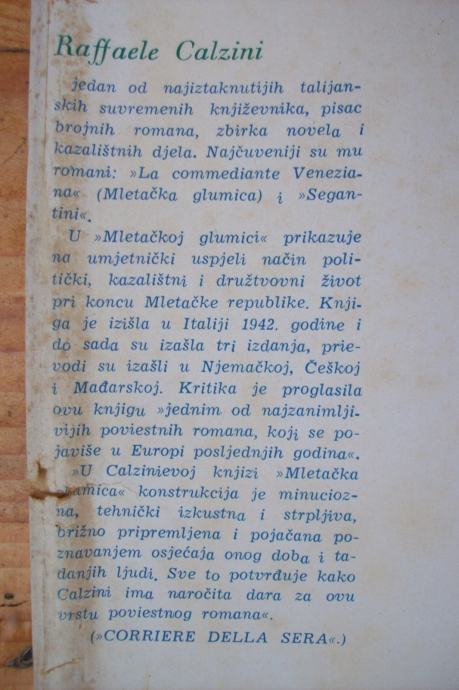 Raffaele Calzini
jedan od najiztaknutijih talijan-
skih suvremenih književnika, pisac
brojnih romana, zbirka novela i
kazalištnih djela. Najčuveniji su mu
romani: »La commediante Venezia-
na« (Mletačka glumica) i »Segan-
tini«.
U »Mletačkoj glumici« prikazuje
na umjetnički uspjeli način poli-
tički, kazalištni i družtvovni život
pri koncu Mletačke republike. Knji-
ga je izišla u Italiji 1942. godine i
do sada su izašla tri izdanja, prie-
vodi su izašli u Njemačkoj, Češkoj
i Mađarskoj. Kritika je proglasila
ovu knjigu »jednim od najzanimlji-
vijih poviestnih romana, koji se po-
javiše u Europi posljednjih godina«.
»U Calzinievoj knjizi »Mletačka
glumica« konstrukcija je minucioz-
na, tehnički izkustna i strpljiva,
brižno pripremljena i pojačana po-
znavanjem osjećaja onog doba i ta-
danjih ljudi. Sve to potvrđuje kako
Calzini ima naročita dara za ovu
vrstu poviestnog romana«.
(»CORRIERE DELLA SERA«.)